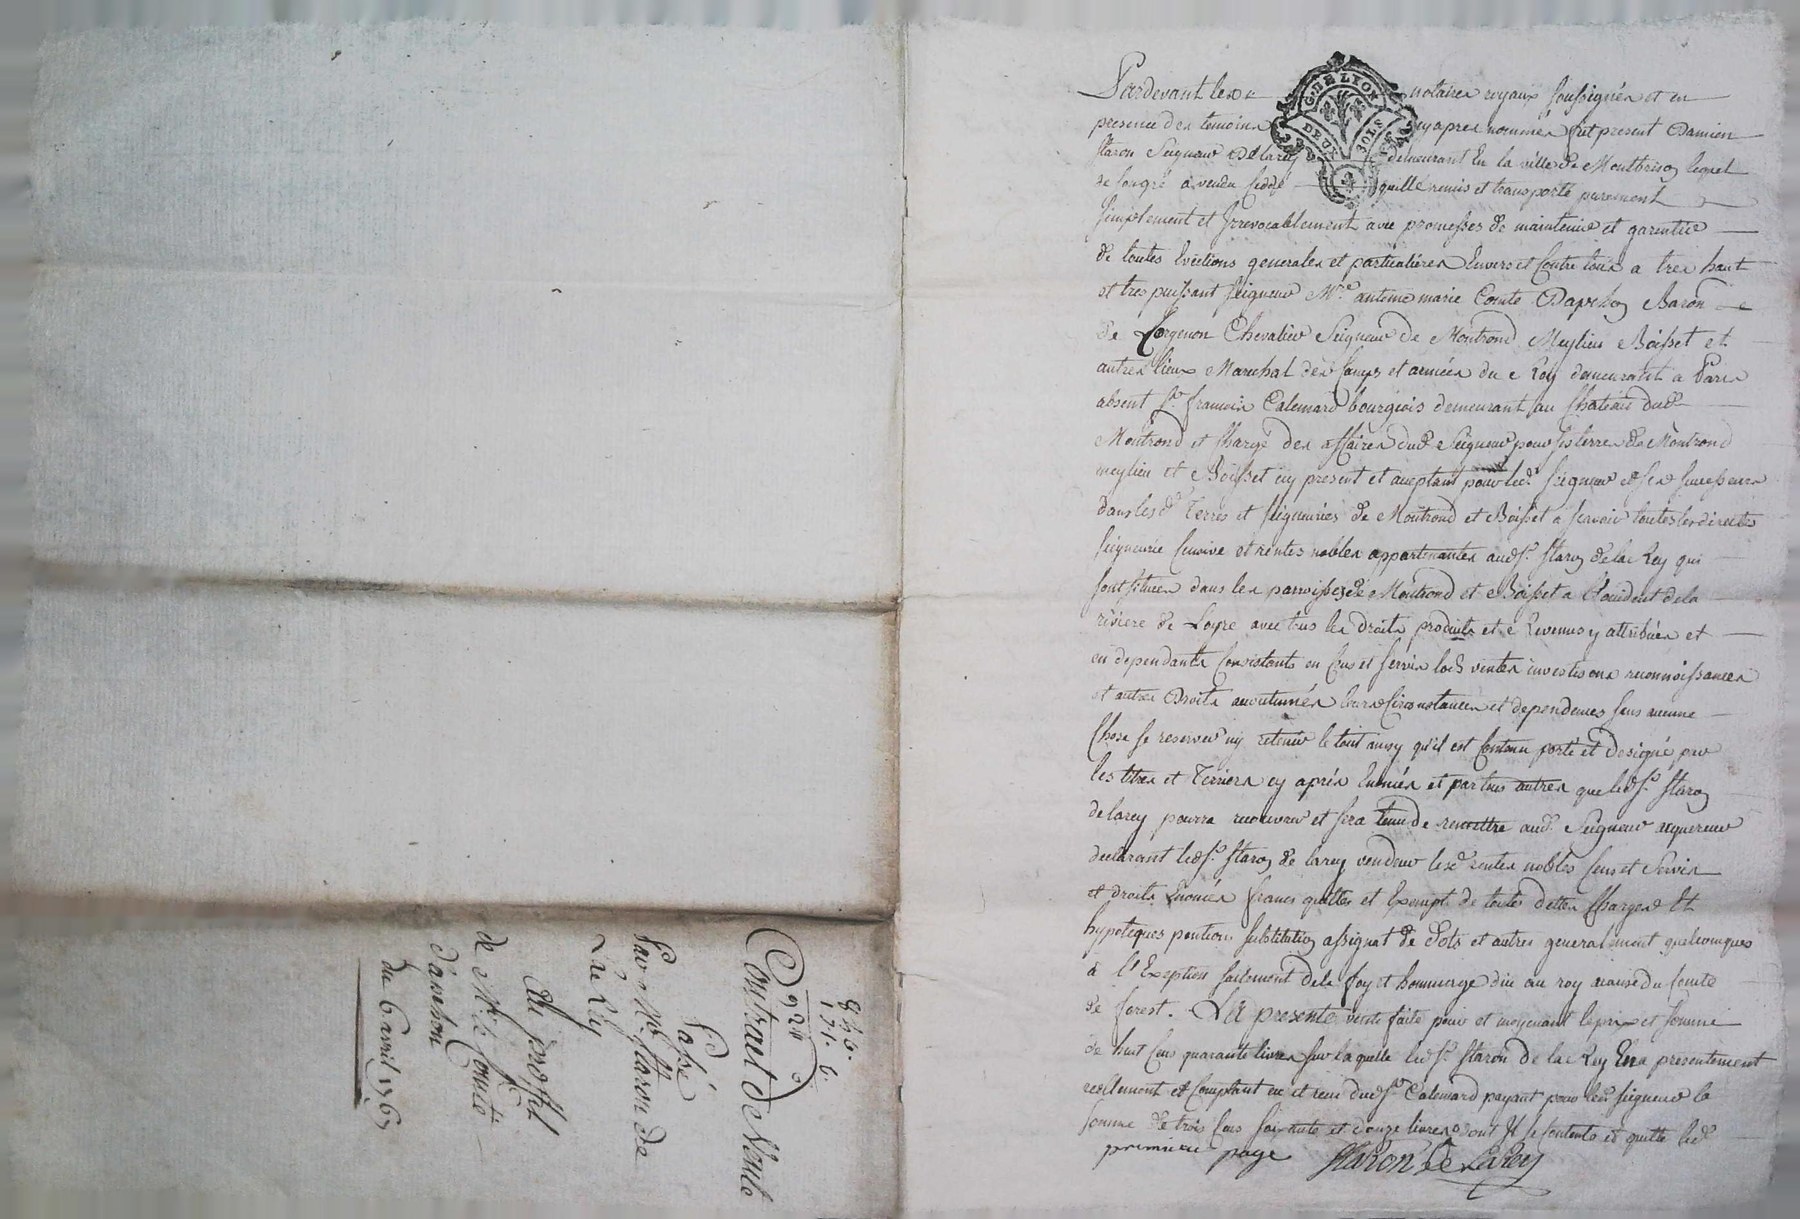 846.
171. 6.
924
Contrait de Vente
Passé
Par Mr. Staron de
La Rey
Au proffit
de Mr. le Comte
d'apchon
du 6 avril 176
G. DE LYON
DEUX SOLS
Pardevant les notaires royaux soussignés et en
presence des temoins cy apres nommés fut present Damien
Staron Seigneur De larey demeurant En la ville de Montbrison lequel
de son gré a vendu ceddé quitté remis et transporté purement
simplement et Irrevocablement avec promesses de maintenir et garentir
de toutes Evictions generales et particulieres Envers et Contre tous a tres haut
et tres puissant seigneur Mre. antoine marie Comte Dapchon Baron
de Corgenon Chevalier Seigneur de Montrond Meylieu Boisset et
autres lieux Marechal des Camps et armées du Roy demeurant a Paris
absent Sr. francois Calemard bourgeois demeurant au Chateau dud.
Montrond et Chargé des affaires dud. Seigneur pour ses terres de Montrond
meylieu et Boisset cy present et acceptant pour led. seigneur et ses successeurs
dans lesd. Terres et seigneuries de Montrond et Boisset a scavoir toutes les directes
seigneurie Censive et rentes nobles appartenantes aud Sr. Staron de la Rey qui
sont situées dans les parroisses de Montrond et Boisset a l'occident de la
riviere de Loyre avec tous les droits produits et Revenus y attribués et
en dependants Consistants en Cens et servis lods ventes investisons reconnoissances
et autres Droits accoutumés leurs Circonstances et dependences sans aucune
Chose se reserver ny retenir le tout ainsy qu'il est Contenu porté et designé par
les titres et Terriers cy aprés Enoncés et par tous autres que led Sr. Staron
de larey pourra recouvrer et sera tenu de remettre aud. Seigneur acquereur
declarant led Sr. Staron de larey vendeur lesd. rentes nobles Cens et Servis
et droits Enoncés francs quittes et Exempt de toutes dettes Charges Et
hypoteques pentions substitution assignat de Dots et autres generalement quelconques
à l'Exeption seulement de la foy et hommage due au roy acause du Comté
de forest. La presente vente faite pour et moyenant le prix et somme
de huit Cens quarante livres sur laquelle led Sr. Staron de la Rey En a presentement
reellement et Comptant eu et recu dud Sr. Calemard payant pour led. seigneur la
somme de trois Cens soixante et douze livres dont Il se Contente et quitte led.
premiere page Staron De Larey